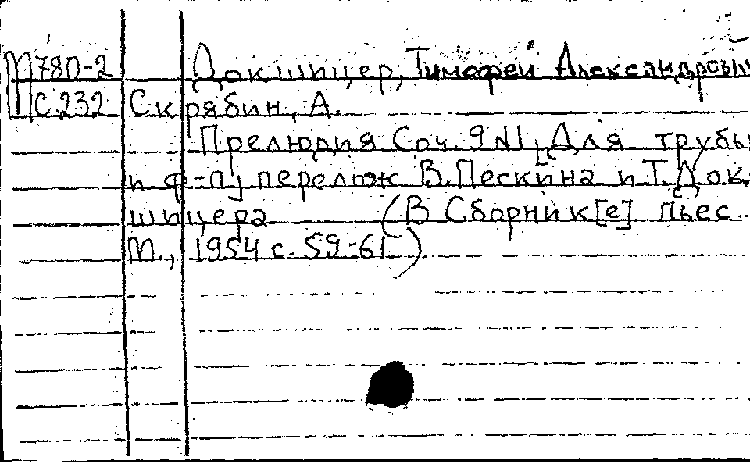 М78П-2 Докшицер, Тимофей Александрович
П С232 Скрябин, А.
Прелюдия Соч. 9 №1, Для трубы
и ф-п; перелож В. Пескина и Т. Док-
шицера (В Сборник[е] пьес
М., 1954 с. 59-61)